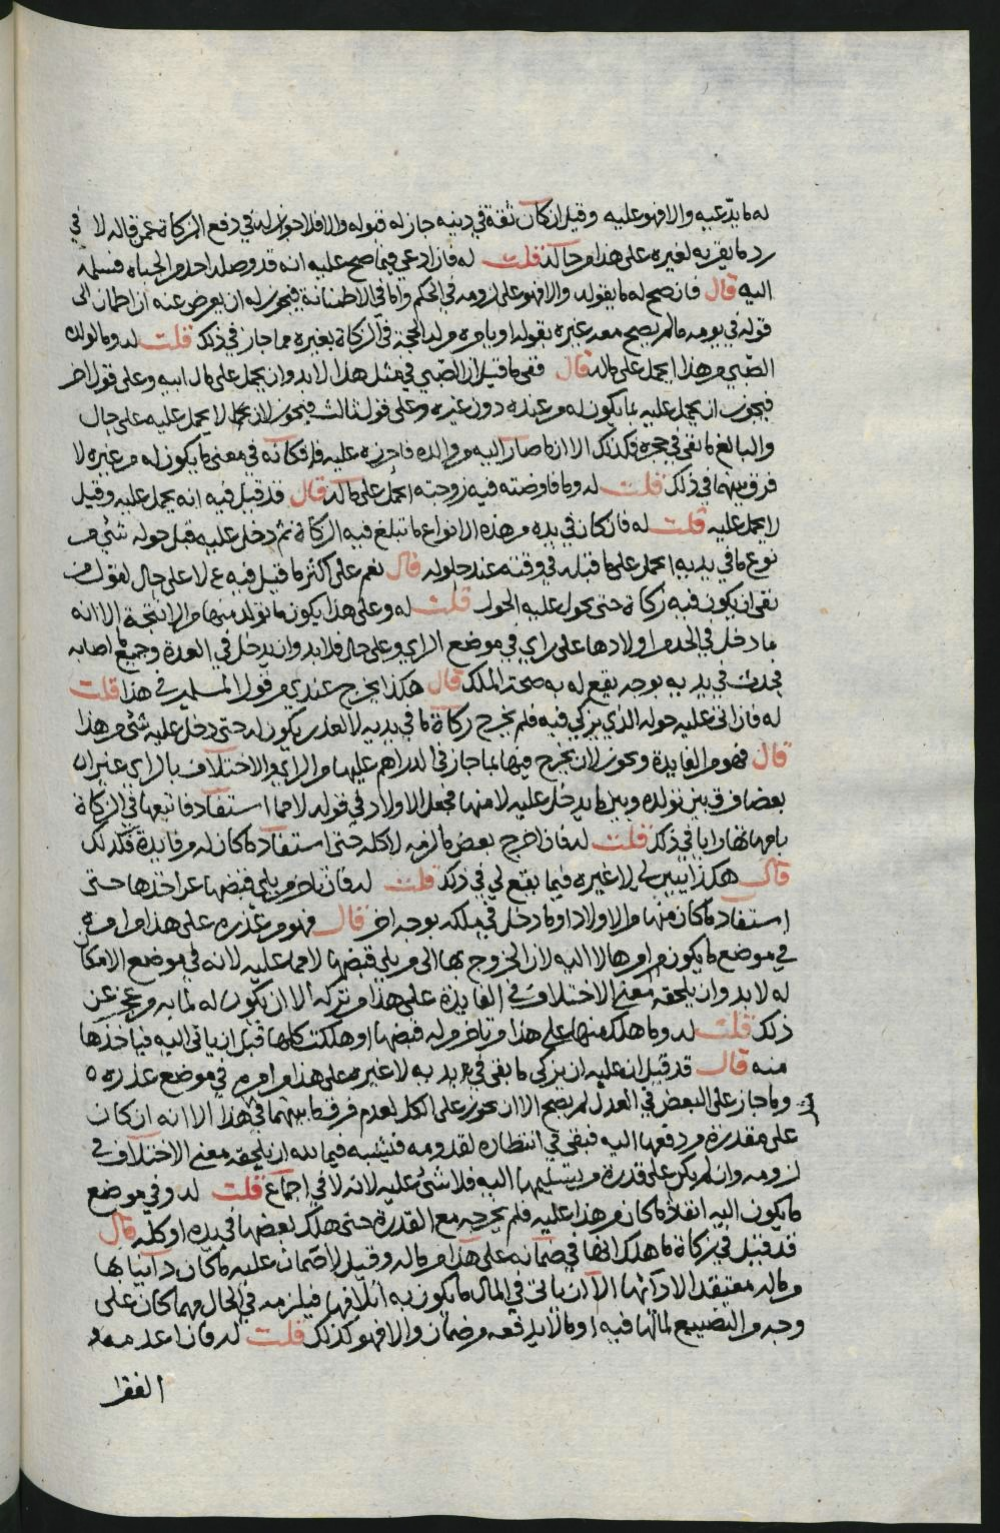 له ما يدّعيه والا فهو عليه وقيل ان كان ثقة في دينه جاز له قبوله والا فلا جواز له في دفع الزكاة عمن قاله لا في
رد ما يقر به لغيره على هذا من حاله قلت له فان ادعى فيما صح عليه انه قد وصله احد من الجباه فسلمه
اليه قال فان صح له ما يقوله والا فهو على لزومه في الحكم واما في الاطمئنانة فيجوز له ان يعرض عنه ان اطمان الى
قوله في يومه ما لم يصح معه غيره بقوله او يامره من له الحجة في الزكاة بغيره مما جاز في ذلك قلت له وما لولده
الصّبي من هذا ايحمل على ماله قال ففي ما قيل ان الصّبي في مثل هذا لا بد وان يحمل على مال ابيه وعلى قول اخر
فيجوز ان يحمل عليه ما يكون له من عبده دون غيره وعلى قول ثالث فيجوز لان لا يحمل عليه على حال
والبالغ ما بقي في حجره فكذلك الا ان ما صار اليه من والده فاحرزه عليه فكانه في معنى ما يكون له من غيره لا
فرق بينهما في ذلك قلت له وما فاوضته فيه زوجته ايحمل على ماله قال قد قيل فيه انه يحمل عليه وقيل
لا يحمل عليه قلت له فان كان في يده من هذه الانواع ما تبلغ فيه الزكاة ثم دخل عليه قبل حوله شيء من
نوع ما في يديه ايحمل على ما قبله في وقته عند حلوله قال نعم على اكثر ما قيل فيه لا على حال لقول من
نفى ان يكون فيه زكاة حتى يحول عليه الحول قلت له وعلى هذا يكون ما تولد منها من الانتجة الا انه
ما دخل في الحد من اولادها على راي في موضع الراي وعلى حال فلا بد وان يدخل في العدة وجميع ما اصابه
فحدث في يديه بوجه يقع له به صحة الملك قال هكذا يخرج عندي من قول المسلمين في هذا قلت
له فان اتى عليه حوله الذي يزكي فيه فلم يخرج زكاة ما في يديه لا لعذر يكون له حتى دخل عليه شيء من هذا
قال فهو من الفايدة ويجوز لان يخرج فيها ما جاز في الدراهم عليها من الراي والاختلاف بالراي غير ان
بعضا فرق بين تولده وبين ما يدخل عليه لا منها فجعل الاولاد في قوله لا ما استفاد فاتبعها في الزكاة
بامهاتها رايا في ذلك قلت له فان اخرج بعض ما لزمه لا كله حتى استفاد ما كان له من فايدة فكذلك
قال هكذا يبين لي لا غيره فيما يقع لي في ذلك قلت له فان تاخر من يلي قبضها عن اخذها حتى
استفاد ما كان منها من الاولاد او ما دخل في ملكه بوجه اخر قال فهو من عذره على هذا من امره
في موضع ما يكون من امرها لا اليه لان الخروج بها الى من يلي قبضها لا مما عليه لانه في موضع الامكان
له لا بد وان يلحقه معنى الاختلاف في الفايدة على هذا من تركه الا ان يكون له لما به من عجز عن
ذلك قلت له وما هلك منها على هذا من تاخر من له قبضها او هلكت كلها قبل ان ياتي اليه فياخذها
منه قال قد قيل انه عليه ان يزكي ما بقي في يديه لا غيره على هذا من امره في موضع عذره
وما جاز على البعض في العدل لم يصح الا ان يجوز على الكل لعدم فرق ما بينهما في هذا الا انه ان كان
على مقدرة من دفعها اليه فبقي في انتظاره لقدومه فيشبه فيما له ان يلحقه معنى الاختلاف في
لزومه وان لم يكن على قدرة من تسليمها اليه فلا شئ عليه لانه لا في اجماع قلت له وفي موضع
ما يكون اليه انفاذ ما كان من هذا عليه فلم يخرجه مع القدرة حتى هلك بعضها في يده او كله قال
قد قيل في زكاة ما هلك انها في ضمانه على هذا من ماله وقيل لا ضمان عليه ما كان دائنا بها
وماله معتقد الادائها الا ان ياتي في المال ما يكون به اتلافها فيلزمه في الحال مهما كان على
وجه التضييع لما لها فيه او مالا يدفعه من ضمان والا فهو كذلك قلت له فان اعدمه
الفقرا